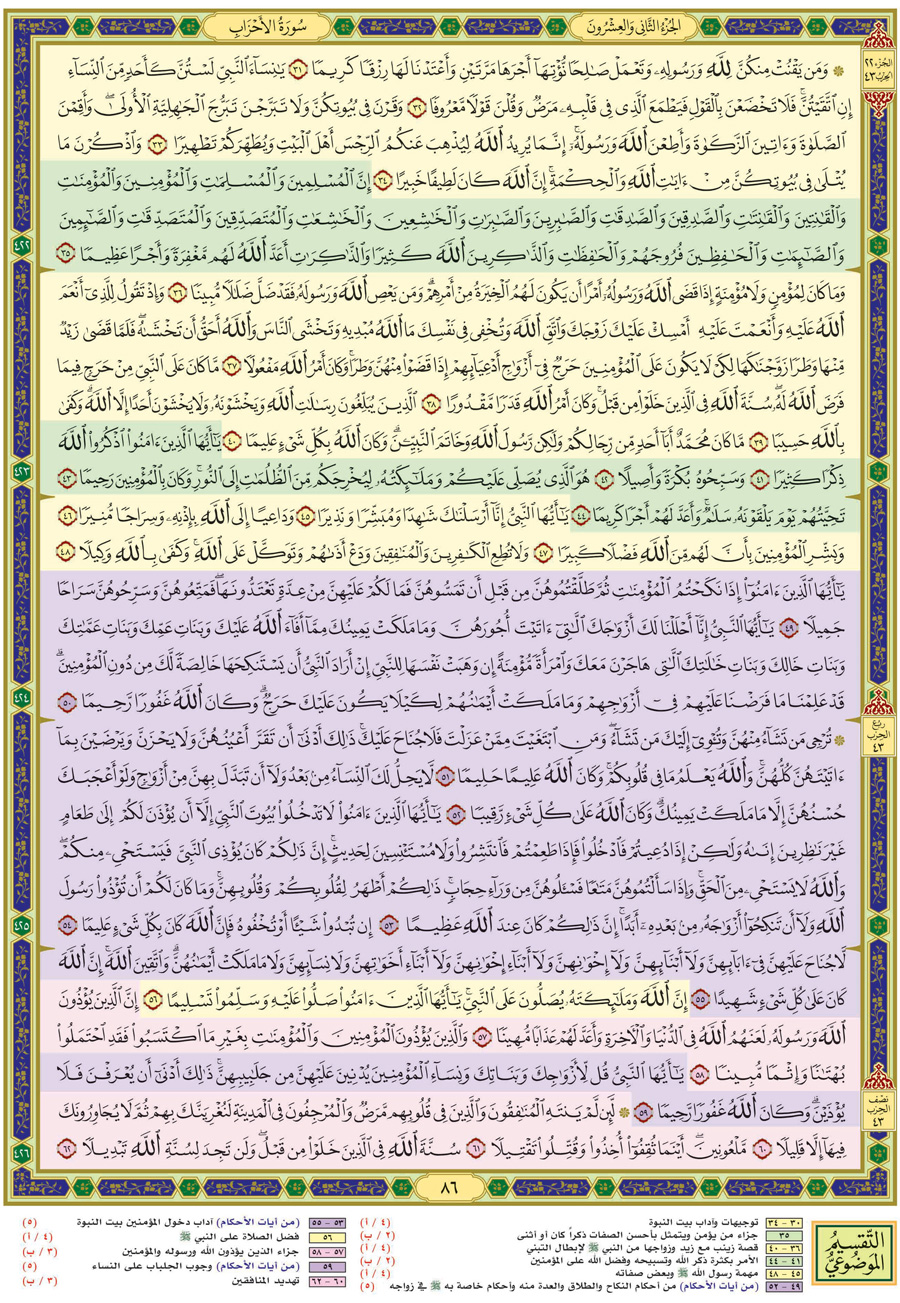 الجزء الثاني والعشرون
سورة الأحزاب
الجزء ٢٢
الحزب ٤٣
۞ وَمَن يَقْنُتْ مِنكُنَّ لِلَّهِ وَرَسُولِهِۦ وَتَعْمَلْ صَٰلِحًا نُّؤْتِهَآ أَجْرَهَا مَرَّتَيْنِ وَأَعْتَدْنَا لَهَا رِزْقًا كَرِيمًا ٣١ يَٰنِسَآءَ ٱلنَّبِىِّ لَسْتُنَّ كَأَحَدٍ مِّنَ ٱلنِّسَآءِ
إِنِ ٱتَّقَيْتُنَّ ۚ فَلَا تَخْضَعْنَ بِٱلْقَوْلِ فَيَطْمَعَ ٱلَّذِى فِى قَلْبِهِۦ مَرَضٌ وَقُلْنَ قَوْلًا مَّعْرُوفًا ٣٢ وَقَرْنَ فِى بُيُوتِكُنَّ وَلَا تَبَرَّجْنَ تَبَرُّجَ ٱلْجَٰهِلِيَّةِ ٱلْأُولَىٰ ۖ وَأَقِمْنَ
ٱلصَّلَوٰةَ وَءَاتِينَ ٱلزَّكَوٰةَ وَأَطِعْنَ ٱللَّهَ وَرَسُولَهُۥٓ ۚ إِنَّمَا يُرِيدُ ٱللَّهُ لِيُذْهِبَ عَنكُمُ ٱلرِّجْسَ أَهْلَ ٱلْبَيْتِ وَيُطَهِّرَكُمْ تَطْهِيرًا ٣٣ وَٱذْكُرْنَ مَا
يُتْلَىٰ فِى بُيُوتِكُنَّ مِنْ ءَايَٰتِ ٱللَّهِ وَٱلْحِكْمَةِ ۚ إِنَّ ٱللَّهَ كَانَ لَطِيفًا خَبِيرًا ٣٤ إِنَّ ٱلْمُسْلِمِينَ وَٱلْمُسْلِمَٰتِ وَٱلْمُؤْمِنِينَ وَٱلْمُؤْمِنَٰتِ
وَٱلْقَٰنِتِينَ وَٱلْقَٰنِتَٰتِ وَٱلصَّٰدِقِينَ وَٱلصَّٰدِقَٰتِ وَٱلصَّٰبِرِينَ وَٱلصَّٰبِرَٰتِ وَٱلْخَٰشِعِينَ وَٱلْخَٰشِعَٰتِ وَٱلْمُتَصَدِّقِينَ وَٱلْمُتَصَدِّقَٰتِ وَٱلصَّٰٓئِمِينَ
وَٱلصَّٰٓئِمَٰتِ وَٱلْحَٰفِظِينَ فُرُوجَهُمْ وَٱلْحَٰفِظَٰتِ وَٱلذَّٰكِرِينَ ٱللَّهَ كَثِيرًا وَٱلذَّٰكِرَٰتِ أَعَدَّ ٱللَّهُ لَهُم مَّغْفِرَةً وَأَجْرًا عَظِيمًا ٣٥
٤٢٢
وَمَا كَانَ لِمُؤْمِنٍ وَلَا مُؤْمِنَةٍ إِذَا قَضَى ٱللَّهُ وَرَسُولُهُۥٓ أَمْرًا أَن يَكُونَ لَهُمُ ٱلْخِيَرَةُ مِنْ أَمْرِهِمْ ۗ وَمَن يَعْصِ ٱللَّهَ وَرَسُولَهُۥ فَقَدْ ضَلَّ ضَلَٰلًا مُّبِينًا ٣٦ وَإِذْ تَقُولُ لِلَّذِىٓ أَنْعَمَ
ٱللَّهُ عَلَيْهِ وَأَنْعَمْتَ عَلَيْهِ أَمْسِكْ عَلَيْكَ زَوْجَكَ وَٱتَّقِ ٱللَّهَ وَتُخْفِى فِى نَفْسِكَ مَا ٱللَّهُ مُبْدِيهِ وَتَخْشَى ٱلنَّاسَ وَٱللَّهُ أَحَقُّ أَن تَخْشَىٰهُ ۖ فَلَمَّا قَضَىٰ زَيْدٌ
مِّنْهَا وَطَرًا زَوَّجْنَٰكَهَا لِكَىْ لَا يَكُونَ عَلَى ٱلْمُؤْمِنِينَ حَرَجٌ فِىٓ أَزْوَٰجِ أَدْعِيَآئِهِمْ إِذَا قَضَوْا۟ مِنْهُنَّ وَطَرًا ۚ وَكَانَ أَمْرُ ٱللَّهِ مَفْعُولًا ٣٧ مَّا كَانَ عَلَى ٱلنَّبِىِّ مِنْ حَرَجٍ فِيمَا
فَرَضَ ٱللَّهُ لَهُۥ ۖ سُنَّةَ ٱللَّهِ فِى ٱلَّذِينَ خَلَوْا۟ مِن قَبْلُ ۚ وَكَانَ أَمْرُ ٱللَّهِ قَدَرًا مَّقْدُورًا ٣٨ ٱلَّذِينَ يُبَلِّغُونَ رِسَٰلَٰتِ ٱللَّهِ وَيَخْشَوْنَهُۥ وَلَا يَخْشَوْنَ أَحَدًا إِلَّا ٱللَّهَ ۗ وَكَفَىٰ
بِٱللَّهِ حَسِيبًا ٣٩ مَّا كَانَ مُحَمَّدٌ أَبَآ أَحَدٍ مِّن رِّجَالِكُمْ وَلَٰكِن رَّسُولَ ٱللَّهِ وَخَاتَمَ ٱلنَّبِيِّـۧنَ ۗ وَكَانَ ٱللَّهُ بِكُلِّ شَىْءٍ عَلِيمًا ٤٠ يَٰٓأَيُّهَا ٱلَّذِينَ ءَامَنُوا۟ ٱذْكُرُوا۟ ٱللَّهَ
ذِكْرًا كَثِيرًا ٤١ وَسَبِّحُوهُ بُكْرَةً وَأَصِيلًا ٤٢ هُوَ ٱلَّذِى يُصَلِّى عَلَيْكُمْ وَمَلَٰٓئِكَتُهُۥ لِيُخْرِجَكُم مِّنَ ٱلظُّلُمَٰتِ إِلَى ٱلنُّورِ ۚ وَكَانَ بِٱلْمُؤْمِنِينَ رَحِيمًا ٤٣
٤٢٣
تَحِيَّتُهُمْ يَوْمَ يَلْقَوْنَهُۥ سَلَٰمٌ ۚ وَأَعَدَّ لَهُمْ أَجْرًا كَرِيمًا ٤٤ يَٰٓأَيُّهَا ٱلنَّبِىُّ إِنَّآ أَرْسَلْنَٰكَ شَٰهِدًا وَمُبَشِّرًا وَنَذِيرًا ٤٥ وَدَاعِيًا إِلَى ٱللَّهِ بِإِذْنِهِۦ وَسِرَاجًا مُّنِيرًا ٤٦
وَبَشِّرِ ٱلْمُؤْمِنِينَ بِأَنَّ لَهُم مِّنَ ٱللَّهِ فَضْلًا كَبِيرًا ٤٧ وَلَا تُطِعِ ٱلْكَٰفِرِينَ وَٱلْمُنَٰفِقِينَ وَدَعْ أَذَىٰهُمْ وَتَوَكَّلْ عَلَى ٱللَّهِ ۚ وَكَفَىٰ بِٱللَّهِ وَكِيلًا ٤٨
يَٰٓأَيُّهَا ٱلَّذِينَ ءَامَنُوٓا۟ إِذَا نَكَحْتُمُ ٱلْمُؤْمِنَٰتِ ثُمَّ طَلَّقْتُمُوهُنَّ مِن قَبْلِ أَن تَمَسُّوهُنَّ فَمَا لَكُمْ عَلَيْهِنَّ مِنْ عِدَّةٍ تَعْتَدُّونَهَا ۖ فَمَتِّعُوهُنَّ وَسَرِّحُوهُنَّ سَرَاحًا
جَمِيلًا ٤٩ يَٰٓأَيُّهَا ٱلنَّبِىُّ إِنَّآ أَحْلَلْنَا لَكَ أَزْوَٰجَكَ ٱلَّٰتِىٓ ءَاتَيْتَ أُجُورَهُنَّ وَمَا مَلَكَتْ يَمِينُكَ مِمَّآ أَفَآءَ ٱللَّهُ عَلَيْكَ وَبَنَاتِ عَمِّكَ وَبَنَاتِ عَمَّٰتِكَ
وَبَنَاتِ خَالِكَ وَبَنَاتِ خَٰلَٰتِكَ ٱلَّٰتِى هَاجَرْنَ مَعَكَ وَٱمْرَأَةً مُّؤْمِنَةً إِن وَهَبَتْ نَفْسَهَا لِلنَّبِىِّ إِنْ أَرَادَ ٱلنَّبِىُّ أَن يَسْتَنكِحَهَا خَالِصَةً لَّكَ مِن دُونِ ٱلْمُؤْمِنِينَ ۗ
قَدْ عَلِمْنَا مَا فَرَضْنَا عَلَيْهِمْ فِىٓ أَزْوَٰجِهِمْ وَمَا مَلَكَتْ أَيْمَٰنُهُمْ لِكَيْلَا يَكُونَ عَلَيْكَ حَرَجٌ ۗ وَكَانَ ٱللَّهُ غَفُورًا رَّحِيمًا ٥٠
٤٢٤
ربع الحزب ٤٣
۞ تُرْجِى مَن تَشَآءُ مِنْهُنَّ وَتُـْٔوِىٓ إِلَيْكَ مَن تَشَآءُ ۖ وَمَنِ ٱبْتَغَيْتَ مِمَّنْ عَزَلْتَ فَلَا جُنَاحَ عَلَيْكَ ۚ ذَٰلِكَ أَدْنَىٰٓ أَن تَقَرَّ أَعْيُنُهُنَّ وَلَا يَحْزَنَّ وَيَرْضَيْنَ بِمَآ
ءَاتَيْتَهُنَّ كُلُّهُنَّ ۚ وَٱللَّهُ يَعْلَمُ مَا فِى قُلُوبِكُمْ ۚ وَكَانَ ٱللَّهُ عَلِيمًا حَلِيمًا ٥١ لَّا يَحِلُّ لَكَ ٱلنِّسَآءُ مِنۢ بَعْدُ وَلَآ أَن تَبَدَّلَ بِهِنَّ مِنْ أَزْوَٰجٍ وَلَوْ أَعْجَبَكَ
حُسْنُهُنَّ إِلَّا مَا مَلَكَتْ يَمِينُكَ ۗ وَكَانَ ٱللَّهُ عَلَىٰ كُلِّ شَىْءٍ رَّقِيبًا ٥٢ يَٰٓأَيُّهَا ٱلَّذِينَ ءَامَنُوا۟ لَا تَدْخُلُوا۟ بُيُوتَ ٱلنَّبِىِّ إِلَّآ أَن يُؤْذَنَ لَكُمْ إِلَىٰ طَعَامٍ
غَيْرَ نَٰظِرِينَ إِنَىٰهُ وَلَٰكِنْ إِذَا دُعِيتُمْ فَٱدْخُلُوا۟ فَإِذَا طَعِمْتُمْ فَٱنتَشِرُوا۟ وَلَا مُسْتَـْٔنِسِينَ لِحَدِيثٍ ۚ إِنَّ ذَٰلِكُمْ كَانَ يُؤْذِى ٱلنَّبِىَّ فَيَسْتَحْىِۦ مِنكُمْ ۖ
وَٱللَّهُ لَا يَسْتَحْىِۦ مِنَ ٱلْحَقِّ ۚ وَإِذَا سَأَلْتُمُوهُنَّ مَتَٰعًا فَسْـَٔلُوهُنَّ مِن وَرَآءِ حِجَابٍ ۚ ذَٰلِكُمْ أَطْهَرُ لِقُلُوبِكُمْ وَقُلُوبِهِنَّ ۚ وَمَا كَانَ لَكُمْ أَن تُؤْذُوا۟ رَسُولَ
ٱللَّهِ وَلَآ أَن تَنكِحُوٓا۟ أَزْوَٰجَهُۥ مِنۢ بَعْدِهِۦٓ أَبَدًا ۚ إِنَّ ذَٰلِكُمْ كَانَ عِندَ ٱللَّهِ عَظِيمًا ٥٣ إِن تُبْدُوا۟ شَيْـًٔا أَوْ تُخْفُوهُ فَإِنَّ ٱللَّهَ كَانَ بِكُلِّ شَىْءٍ عَلِيمًا ٥٤
٤٢٥
لَّا جُنَاحَ عَلَيْهِنَّ فِىٓ ءَابَآئِهِنَّ وَلَآ أَبْنَآئِهِنَّ وَلَآ إِخْوَٰنِهِنَّ وَلَآ أَبْنَآءِ إِخْوَٰنِهِنَّ وَلَآ أَبْنَآءِ أَخَوَٰتِهِنَّ وَلَا نِسَآئِهِنَّ وَلَا مَا مَلَكَتْ أَيْمَٰنُهُنَّ ۗ وَٱتَّقِينَ ٱللَّهَ ۚ إِنَّ ٱللَّهَ
كَانَ عَلَىٰ كُلِّ شَىْءٍ شَهِيدًا ٥٥ إِنَّ ٱللَّهَ وَمَلَٰٓئِكَتَهُۥ يُصَلُّونَ عَلَى ٱلنَّبِىِّ ۚ يَٰٓأَيُّهَا ٱلَّذِينَ ءَامَنُوا۟ صَلُّوا۟ عَلَيْهِ وَسَلِّمُوا۟ تَسْلِيمًا ٥٦ إِنَّ ٱلَّذِينَ يُؤْذُونَ
ٱللَّهَ وَرَسُولَهُۥ لَعَنَهُمُ ٱللَّهُ فِى ٱلدُّنْيَا وَٱلْـَٔاخِرَةِ وَأَعَدَّ لَهُمْ عَذَابًا مُّهِينًا ٥٧ وَٱلَّذِينَ يُؤْذُونَ ٱلْمُؤْمِنِينَ وَٱلْمُؤْمِنَٰتِ بِغَيْرِ مَا ٱكْتَسَبُوا۟ فَقَدِ ٱحْتَمَلُوا۟
بُهْتَٰنًا وَإِثْمًا مُّبِينًا ٥٨ يَٰٓأَيُّهَا ٱلنَّبِىُّ قُل لِّأَزْوَٰجِكَ وَبَنَاتِكَ وَنِسَآءِ ٱلْمُؤْمِنِينَ يُدْنِينَ عَلَيْهِنَّ مِن جَلَٰبِيبِهِنَّ ۚ ذَٰلِكَ أَدْنَىٰٓ أَن يُعْرَفْنَ فَلَا
نصف الحزب ٤٣
يُؤْذَيْنَ ۗ وَكَانَ ٱللَّهُ غَفُورًا رَّحِيمًا ٥٩ ۞ لَّئِن لَّمْ يَنتَهِ ٱلْمُنَٰفِقُونَ وَٱلَّذِينَ فِى قُلُوبِهِم مَّرَضٌ وَٱلْمُرْجِفُونَ فِى ٱلْمَدِينَةِ لَنُغْرِيَنَّكَ بِهِمْ ثُمَّ لَا يُجَاوِرُونَكَ
فِيهَآ إِلَّا قَلِيلًا ٦٠ مَّلْعُونِينَ ۖ أَيْنَمَا ثُقِفُوٓا۟ أُخِذُوا۟ وَقُتِّلُوا۟ تَقْتِيلًا ٦١ سُنَّةَ ٱللَّهِ فِى ٱلَّذِينَ خَلَوْا۟ مِن قَبْلُ ۖ وَلَن تَجِدَ لِسُنَّةِ ٱللَّهِ تَبْدِيلًا ٦٢
٤٢٦
٨٦
التقسيم الموضوعي
٣٠ - ٣٤ توجيهات وآداب بيت النبوة (٤ / أ)
٣٥ جزاء من يؤمن ويتمثل بأحسن الصفات ذكراً كان أو أنثى (٢ / ب)
٣٦ - ٤٠ قصة زينب مع زيد وزواجها من النبي ﷺ لإبطال التبني (٤ / أ)
٤١ - ٤٤ الأمر بكثرة ذكر الله وتسبيحه وفضل الله على المؤمنين (٢ / ب)
٤٥ - ٤٨ مهمة رسول الله ﷺ وبعض صفاته (٤ / أ)
٤٩ - ٥٢ (من آيات الأحكام) من أحكام النكاح والطلاق والعدة منه وأحكام خاصة به ﷺ في زواجه (٥)
٥٣ - ٥٥ (من آيات الأحكام) آداب دخول المؤمنين بيت النبوة (٥)
٥٦ فضل الصلاة على النبي ﷺ (٤ / أ)
٥٧ - ٥٨ جزاء الذين يؤذون الله ورسوله والمؤمنين (٣ / ب)
٥٩ (من آيات الأحكام) وجوب الجلباب على النساء (٥)
٦٠ - ٦٢ تهديد المنافقين (٣ / ب)